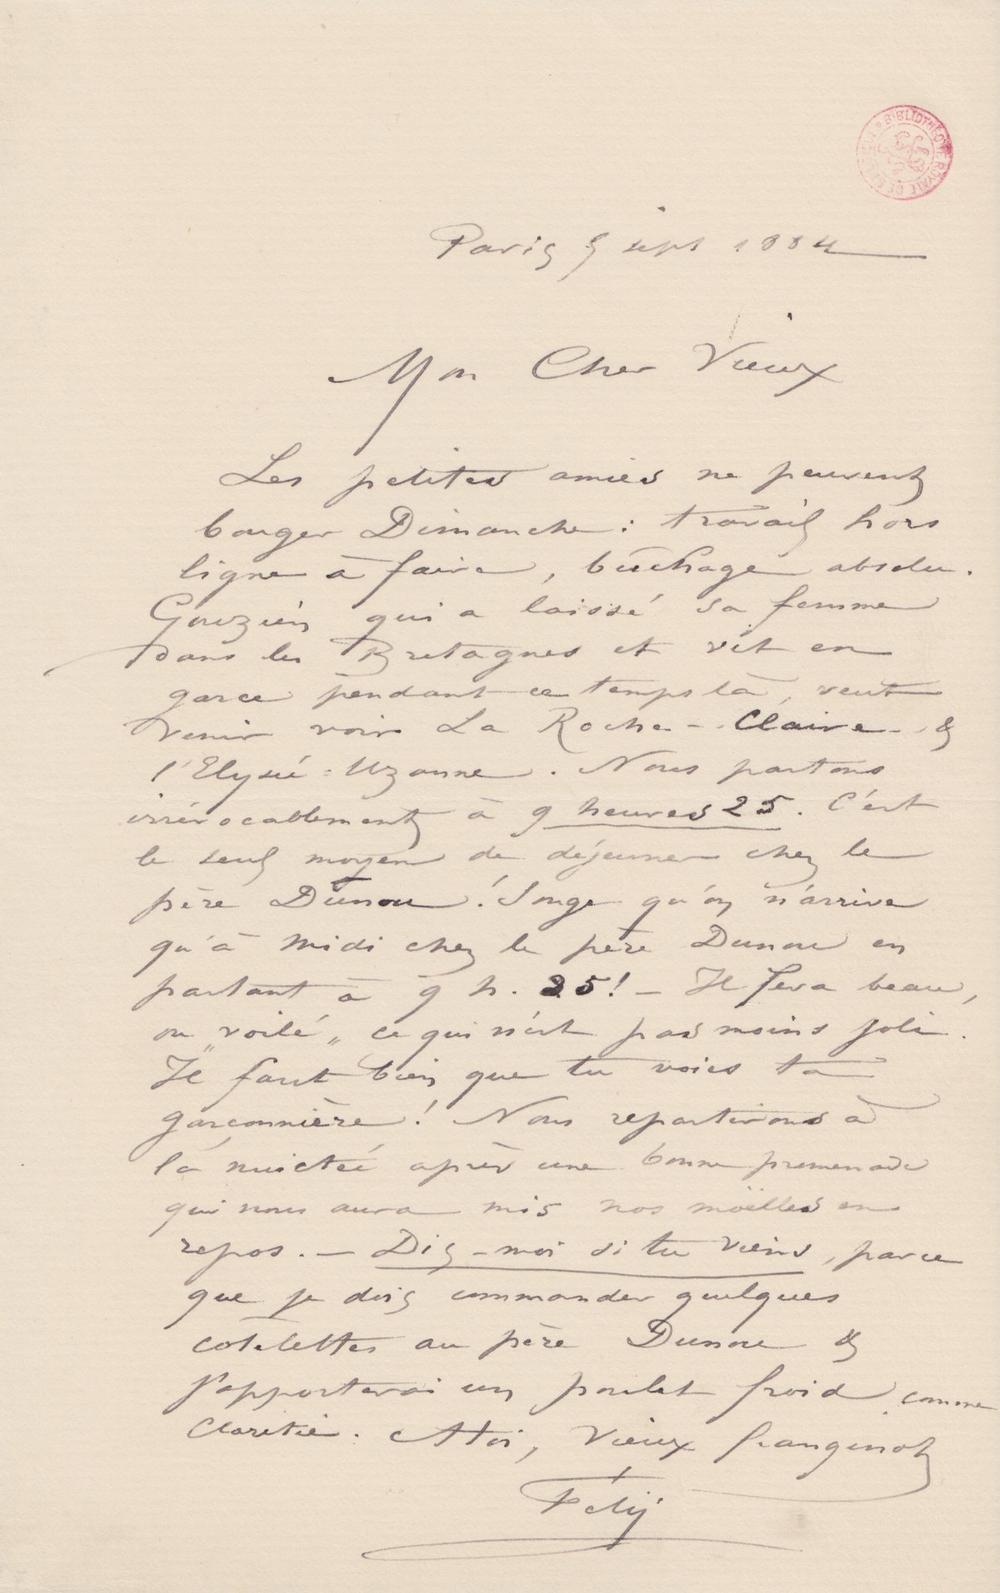 BIBLIOTHÈQUE ROYALE DE BELGIQUE
Paris 5 sept 1884
Mon Cher Vieux
Les petites amies ne peuvent
bouger Dimanche : travail hors
ligne à faire, bûchage absolu.
Gouzien qui a laissé sa femme
dans les Bretagnes et vit en
garce pendant ce temps là, veut
venir voir La Roche-Claire &
l'Elysée-Uzanne. Nous partons
irrévocablement à 9 heures 25. C'est
le seul moyen de déjeuner chez le
père Dunou ! Songe qu'on n'arrive
qu'à midi chez le père Dunou en
partant à 9 h. 25! – Il fera beau,
ou "voilé" ce qui n'est pas moins joli.
Il faut bien que tu voies ta
garçonnière ! Nous repartirons à
la nuictée après une bonne promenade
qui nous aura mis nos moëlles en
repos. – Dis-moi si tu viens, parce
que je dois commander quelques
cotelettes au père Dunou &
j'apporterai un poulet froid comme
Claretie. A toi, Vieux franginot
Fély